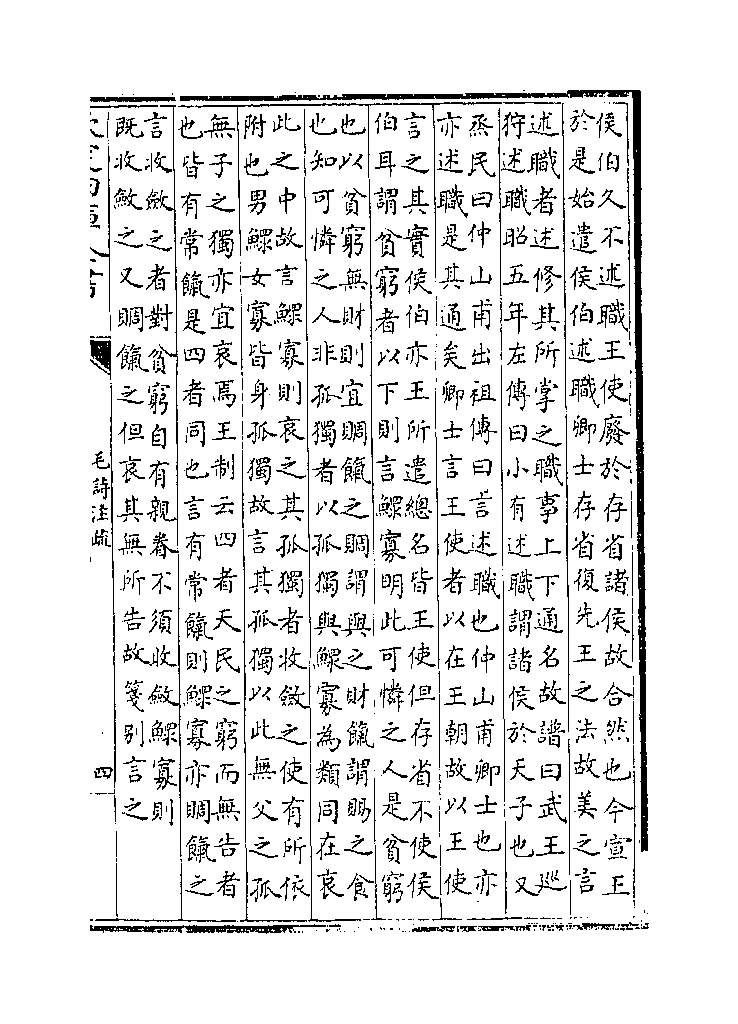 侯伯久不述職王使廢於存省諸侯故合然也今宣王
於是始遣侯伯述職卿士存省復先王之法故美之言
述職者述修其所掌之職事上下通名故譜曰武王廵
狩述職昭五年左傳曰小有述職謂諸侯於天子也又
烝民曰仲山甫出祖傳曰言述職也仲山甫卿士也亦
亦述職是其通矣卿士言王使者以在王朝故以王使
言之其實侯伯亦王所遣總名皆王使但存省不使侯
伯耳謂貧窮者以下則言鰥寡明此可憐之人是貧窮
也以貧窮無財則宜賙餼之賙謂與之財餼謂賜之食
也知可憐之人非孤獨者以孤獨與鰥寡為類同在哀
此之中故言鰥寡則哀之其孤獨者收斂之使有所依
附也男鰥女寡皆身孤獨故言其孤獨以此無父之孤
無子之獨亦宜哀焉王制云四者天民之窮而無告者
也皆有常餼是四者同也言有常餼則鰥寡亦賙餼之
言收斂之者對貧窮自有親眷不須收斂鰥寡則
既收斂之又賙餼之但哀其無所告故箋别言之
毛詩注疏
四